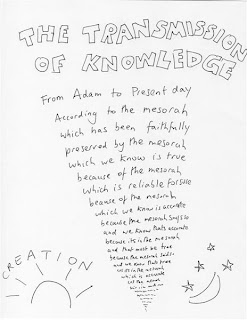 THE TRANSMISSION
OF KNOWLEDGE
From Adam to Present day
According to the mesorah
which has been faithfully
preserved by the mesorah
which we know is true
because of the mesorah
which is reliable forsure
because of the mesorah
which we know is accurate
because the mesorah says so
and we know thats accurate
because its in the mesorah
and that must be true
because the mesorah said so
and we know thats true
CREATION